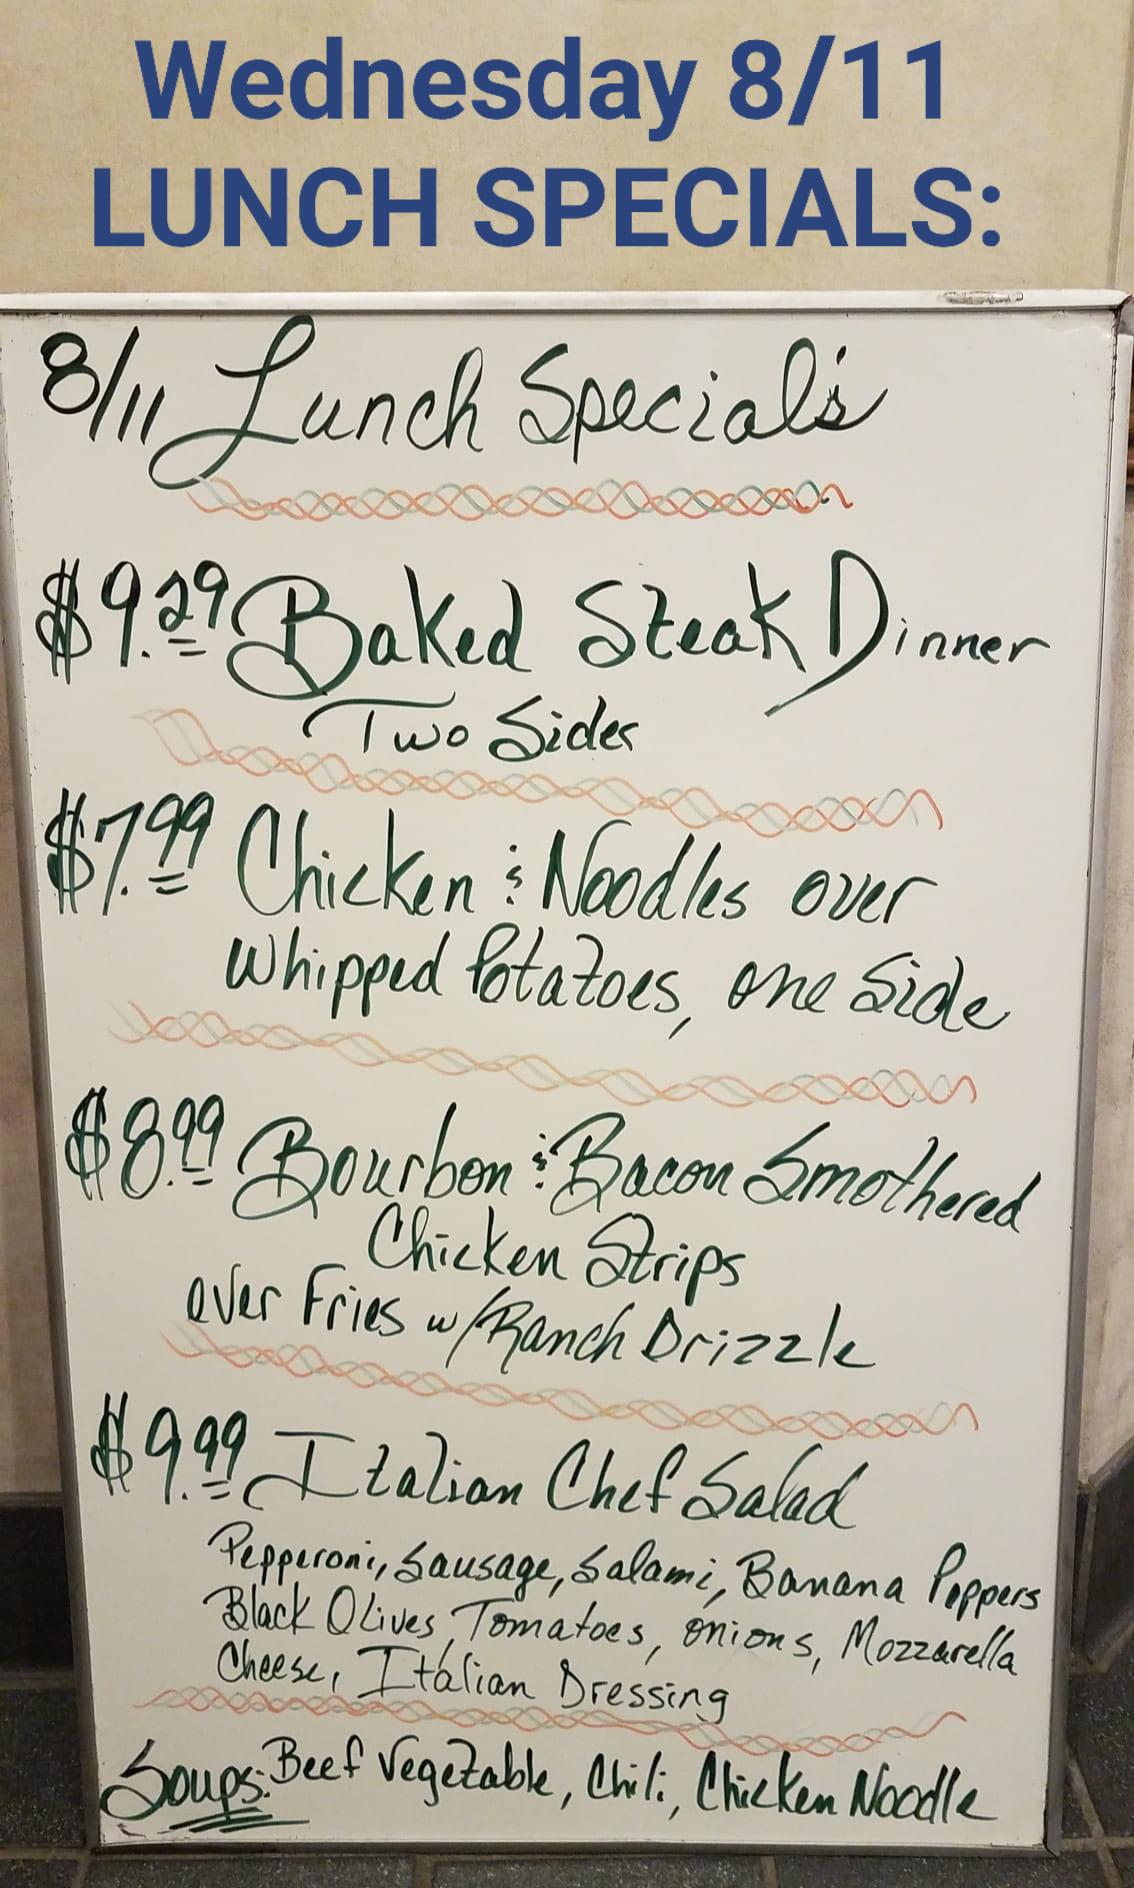 Wednesday 8/11
LUNCH SPECIALS:
8/11 Lunch Special's
$9.29 Baked Steak Dinner
Two Sides
$7.99 Chicken & Noodles over
Whipped Potatoes, one Side
$8.99 Bourbon & Bacon Smothered
Chicken Strips
over Fries w/Ranch Drizzle
$9.99 Italian Chef Salad
Pepperoni, Sausage, Salami, Banana Peppers
Black Olives, Tomatoes, onions, Mozzarella
Cheese, Italian Dressing
Soups: Beef Vegetable, Chili, Chicken Noodle